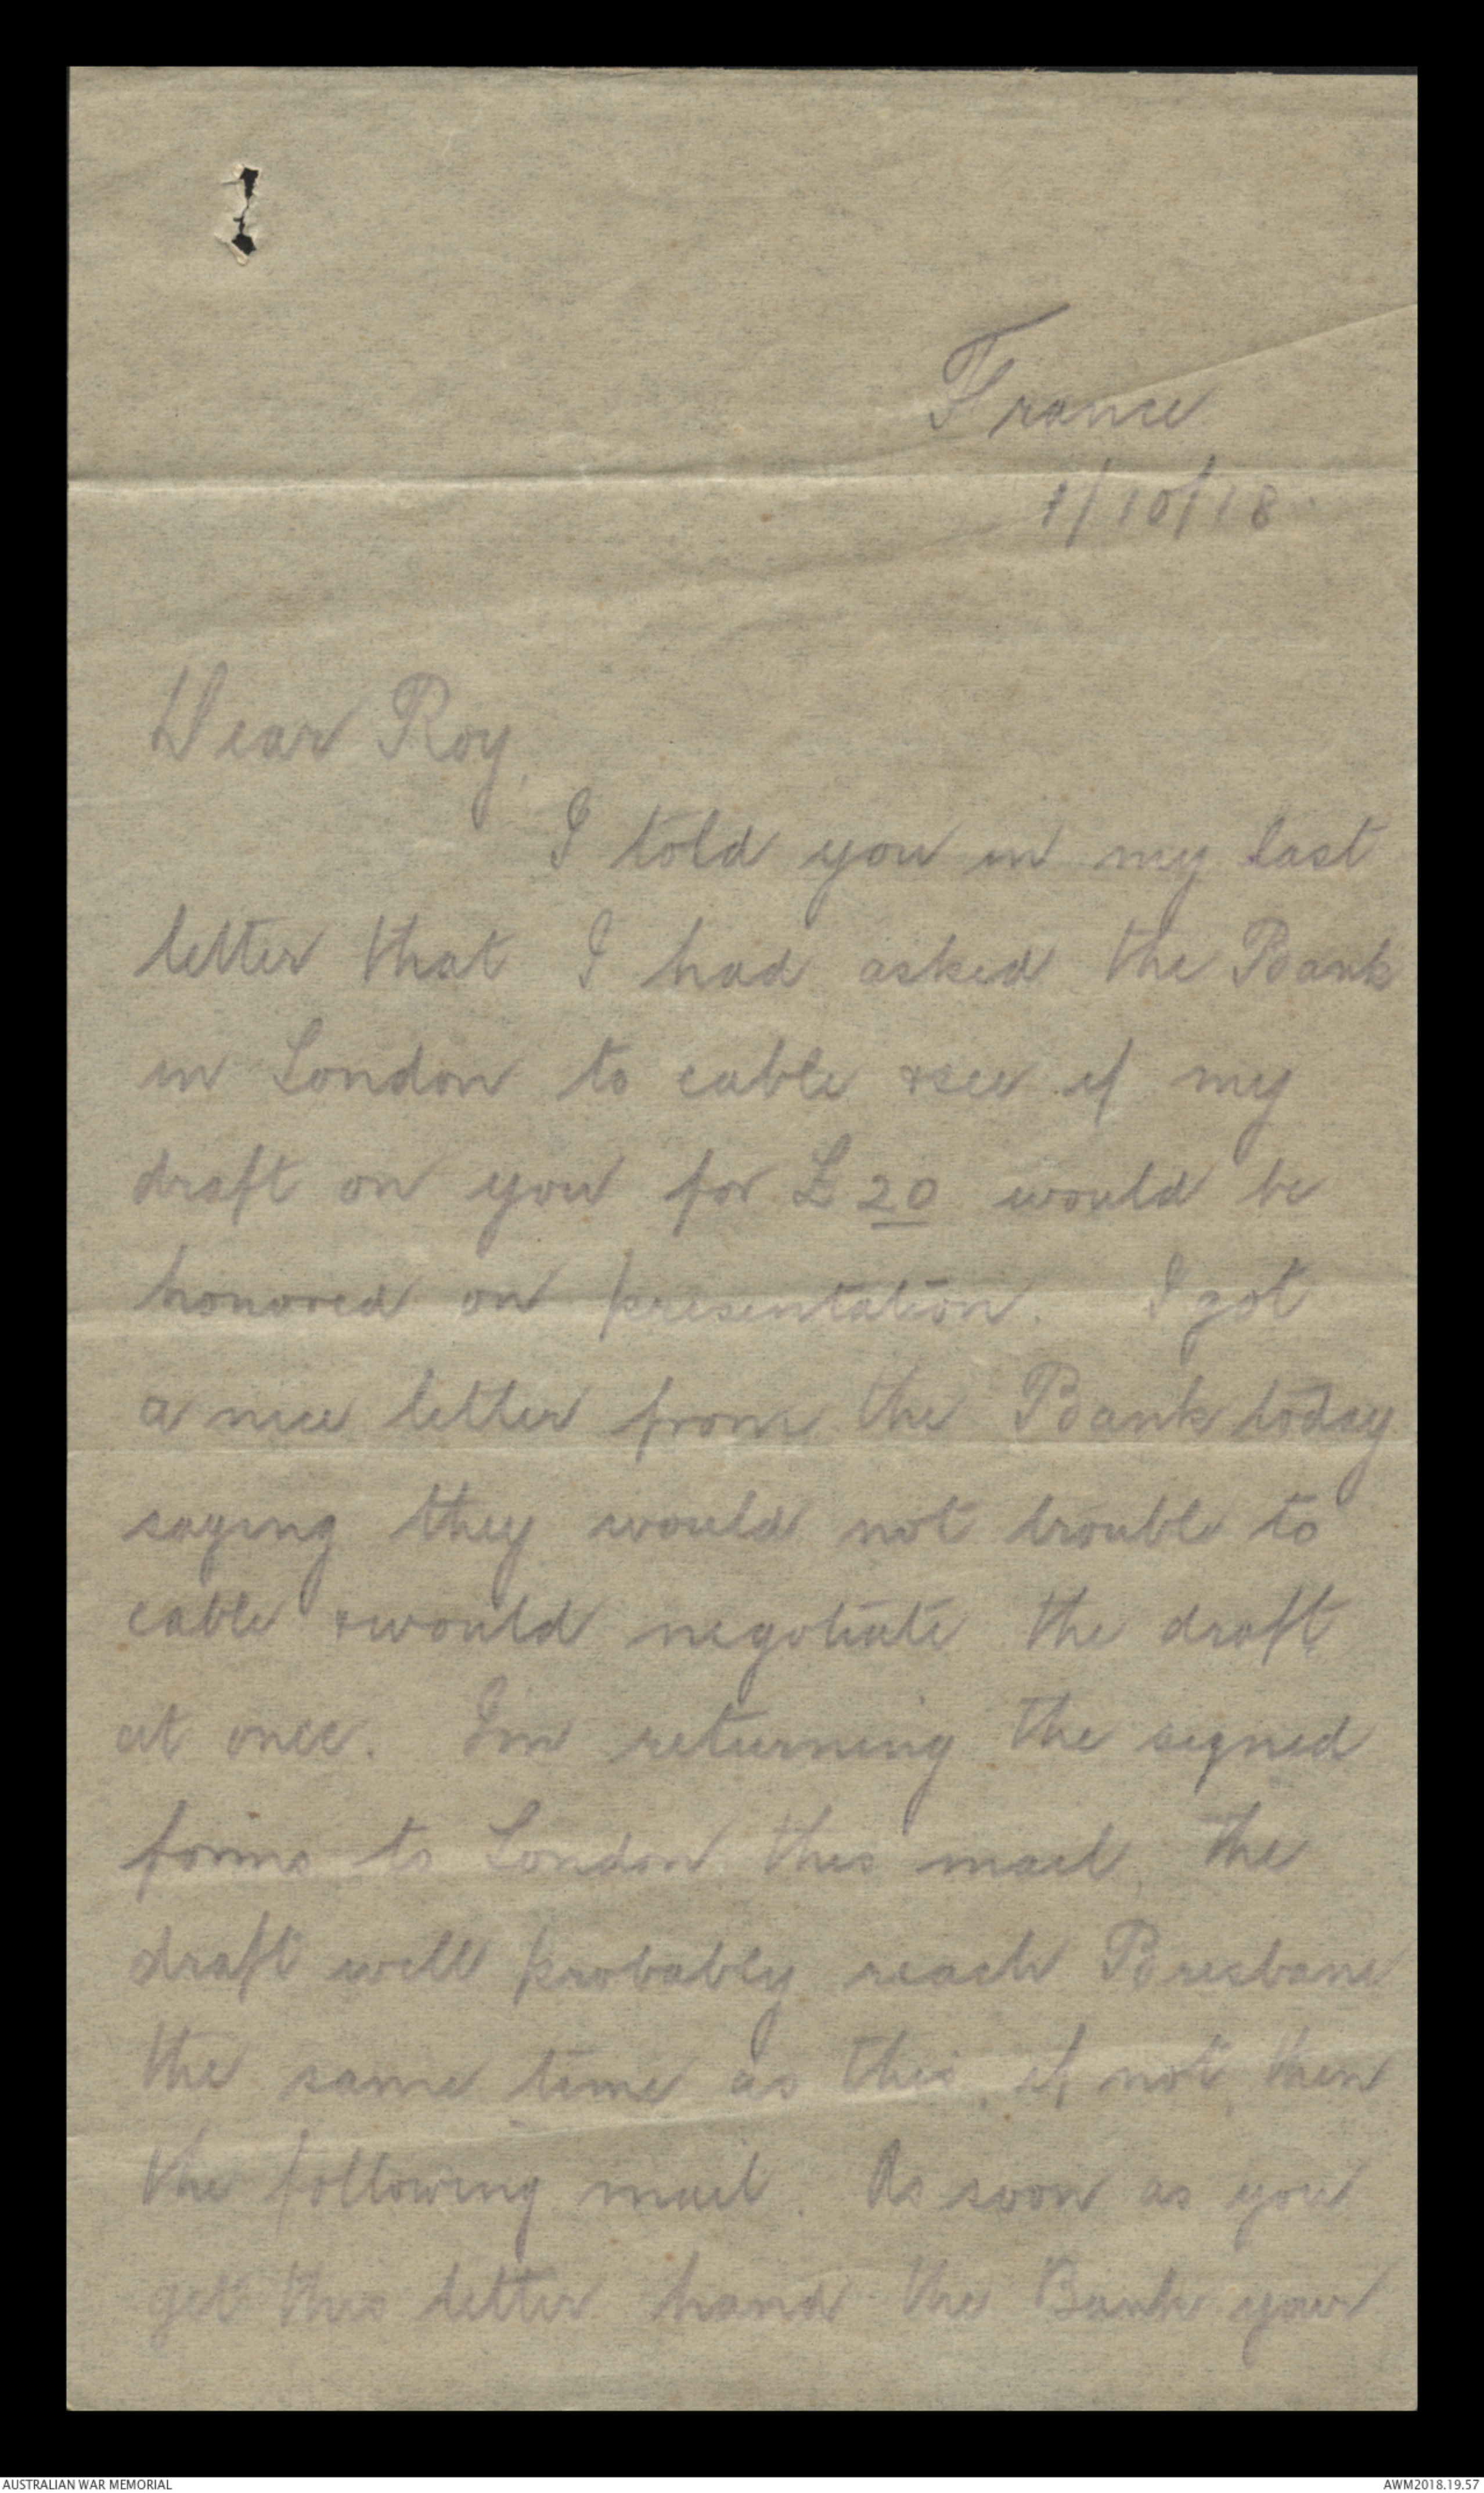 France
1/10/18.
Dear Roy,
I told you in my last
letter that I had asked the Bank
in London to cable & see if my
draft on you for £20 would be
honored on presentation. I got
a nice letter from the Bank today
saying they would not trouble to
cable & would negotiate the draft
at once. I'm returning the signed
forms to London this mail, the
draft will probably reach Brisbane
the same time as this, if not, then
the following mail. As soon as you
get this letter hand the Bank your
AUSTRALIAN WAR MEMORIAL
AWM2018.19.57